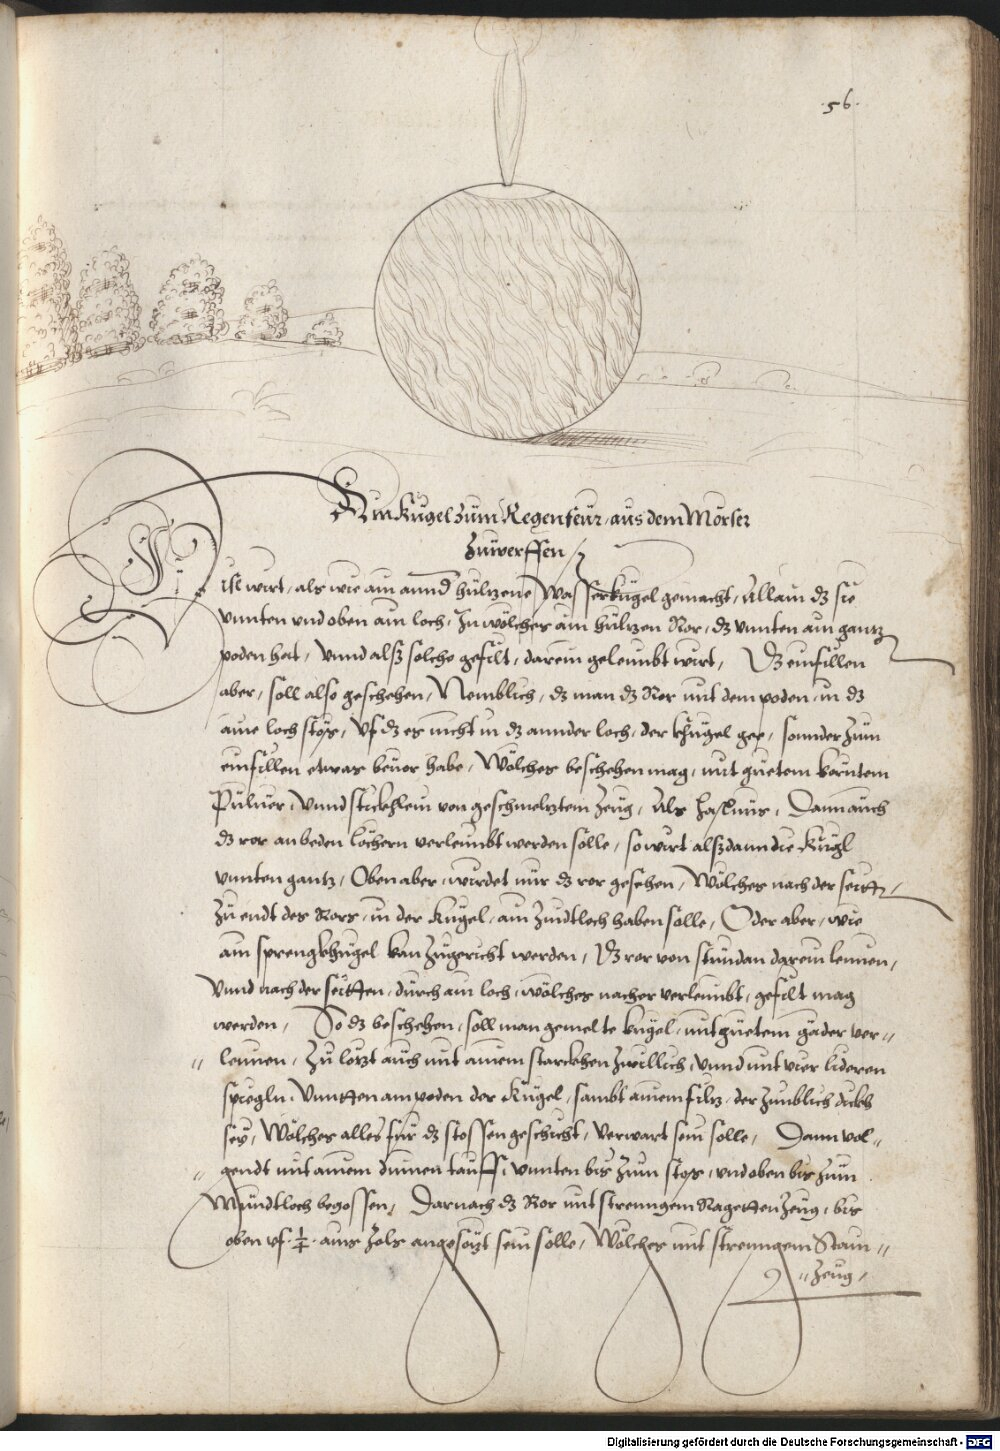 .56.
Ain Kugel zum Regenfeur, aus dem Mörser
zuwerffen /
ist wirt, als wie ain annd hültzene Wasserkugel gemacht, Allain dz sie
vnnten vnd oben ain loch, zu wölcher ain hültzen Ror, dz vnnten ain gantz
poden hat, vnnd alß solche gefilt, darein geleimbt wirt, Dz einfillen
aber, soll also geschehen, Nemblich, dz man dz Ror mit dem poden, in dz
aine loch stos, vf dz es nicht in dz annder loch, der Khugel gee, sonnder zum
einfillen etwas beuor habe, Wölches beschehen mag, mit guetem korntem
Puluer, vnnd stickhlein von geschmeltztem Zeug, Als haslnus, Dann auch
dz ror an beden löchern verleimbt werden solle, so wirt alßdann die Kugl
vnnten gantz, Oben aber, würdet nur dz ror gesehen, Wölches nach der seitt,
zu endt des Rors, in der Kugel, ain Zindtloch haben solle, Oder aber, wie
ain sprengkhugel kan zugericht werden, Dz ror von stundan darein leimen,
vnnd nach der seitten, durch ain loch, wölches nacher verleimbt, gefilt mag
werden, So dz beschehen, soll man gemelte kugel, mit guetem gäder ver„
„ leimen, Zu letzt auch mit ainem starckhen Zwillich, vnnd mit vier lideren
spiegln, Vnntten am poden der Kugel, sambt ainem filtz, der zimblich dickh
sey, Wölches alles für dz stossen geschicht, verwart sein solle, Dann vol„
„ gendt mit ainem dinnen tauff, vnnten bis zum stos, vnd oben bis zum
Mundtloch begossen, Darnach dz Ror mit strenngem Ragetten Zeug, bis
oben vf 1/4 ains Zols angesetzt sein solle, Wölches mit strenngem Staim„
„ Zeug,
Digitalisierung gefördert durch die Deutsche Forschungsgemeinschaft - DFG